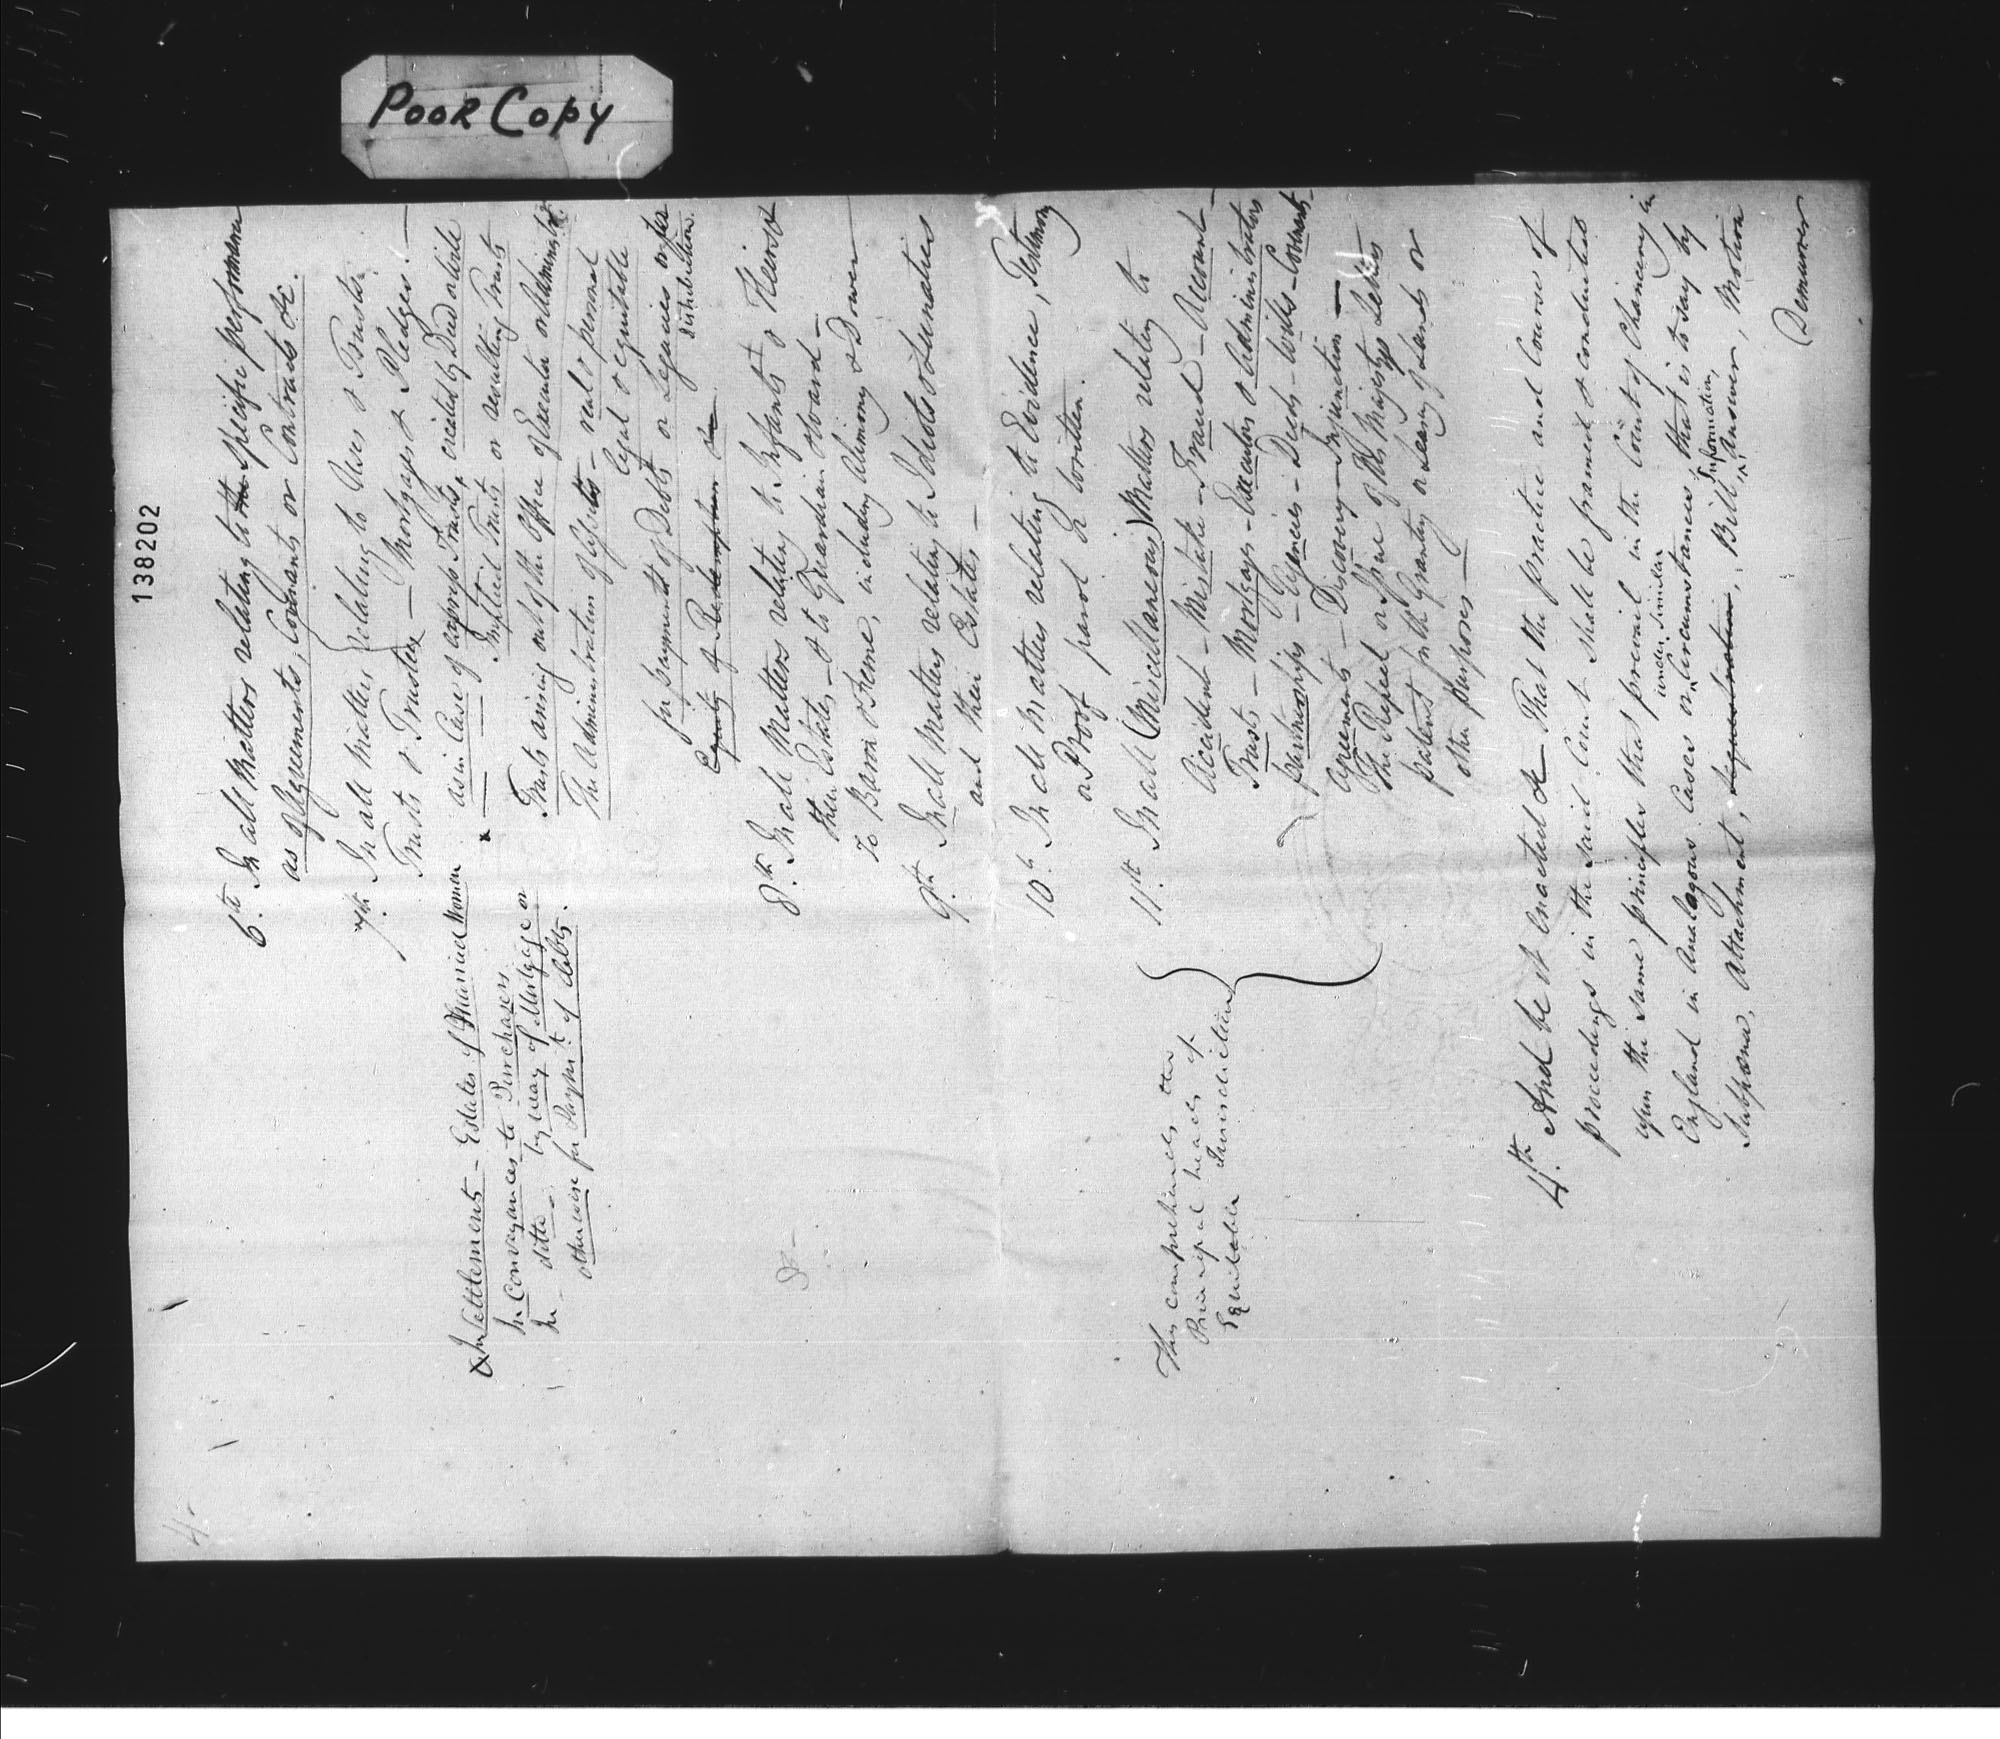 Poor Copy
138202
4.
6th. In all Matters relating to the specific performance
as of Agreements, Covenants or Contracts &c.
7th. In all Matters relating to Uses & Trusts.
Trusts & Trustees — Mortgages & Pledges. —
as in Case of express Trusts, created by Deed or Will
Implied Trusts or resulting Trusts
Trusts arising out of the Office of Executor or Administrator.
The Administration of Assets — real & personal
legal & equitable
for payment of Debts or Legacies or for
distribution.
Equity of Redemption
& In Settlements — Estates of Married Women
In Conveyances to Purchasers
In ditto — by way of Mortgage or
otherwise for Paymt. of debts.
8th. In all Matters relating to Infants & their
their Estates — & to Guardian & Ward —
To Baron & Feme, including Alimony & Dower —
9th. In all Matters relating to Idiots & Lunatics
and their Estates —
10th In all Matters relating to Evidence, Testimony
or Proof parol or written.
11th. In all (Miscellaneous) Matters relating to
Accident — Mistake — Fraud — Account —
Trusts — Mortgages — Executors & Administrators
partnerships — Agencies — Deeds — Wills — Covenants —
Agreements — Discovery — Injunction —
The Repeal or of His Majestys Letters
patent for the Granting or Leasing of Lands or
other purposes —
This comprehends the
Principal heads of
Equitable Jurisdiction
4th. And be it enacted &c — That the practice and Course of
proceedings in the said Court shall be framed & conducted
upon the same principles that prevail in the Court of Chancery in
under similar
England in Analagous Cases or Circumstances, that is to say by
Information,
Subpœna, Attachment, Sequestration, Bill, Answer, Motion
Demurrer